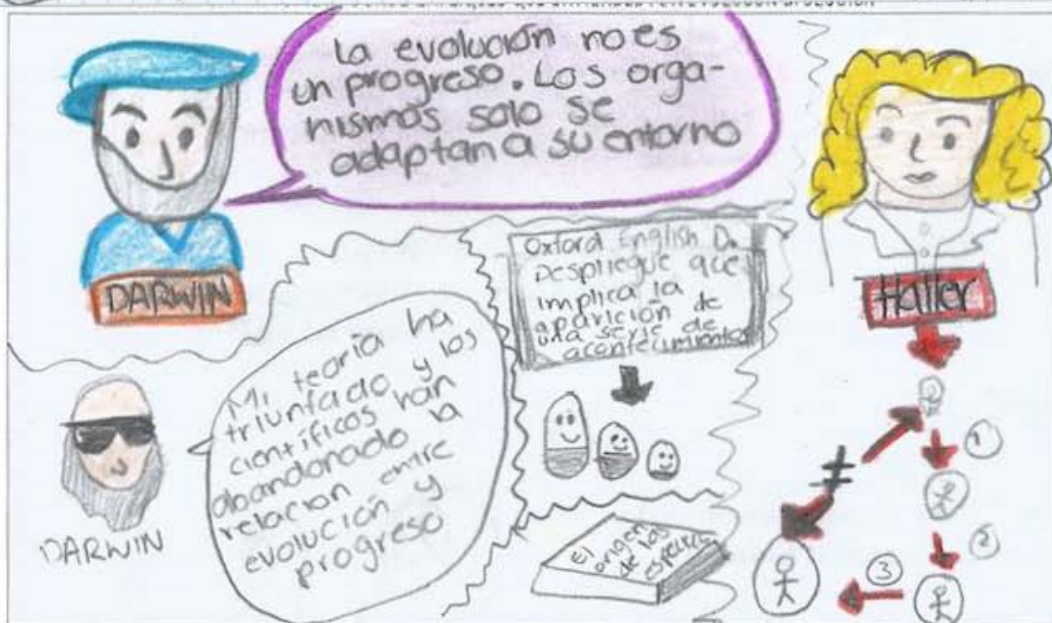 La evolución no es
un progreso. Los orga-
nismos solo se
adaptan a su entorno
DARWIN
Haller
Oxford English D.
Despliegue que
implica la
aparición de
una serie de
acontecimientos
Mi teoría ha
triunfado y los
científicos han
abandonado la
relación entre
evolución y
progreso
DARWIN
El
origen
de las
especies
≠
1
2
3